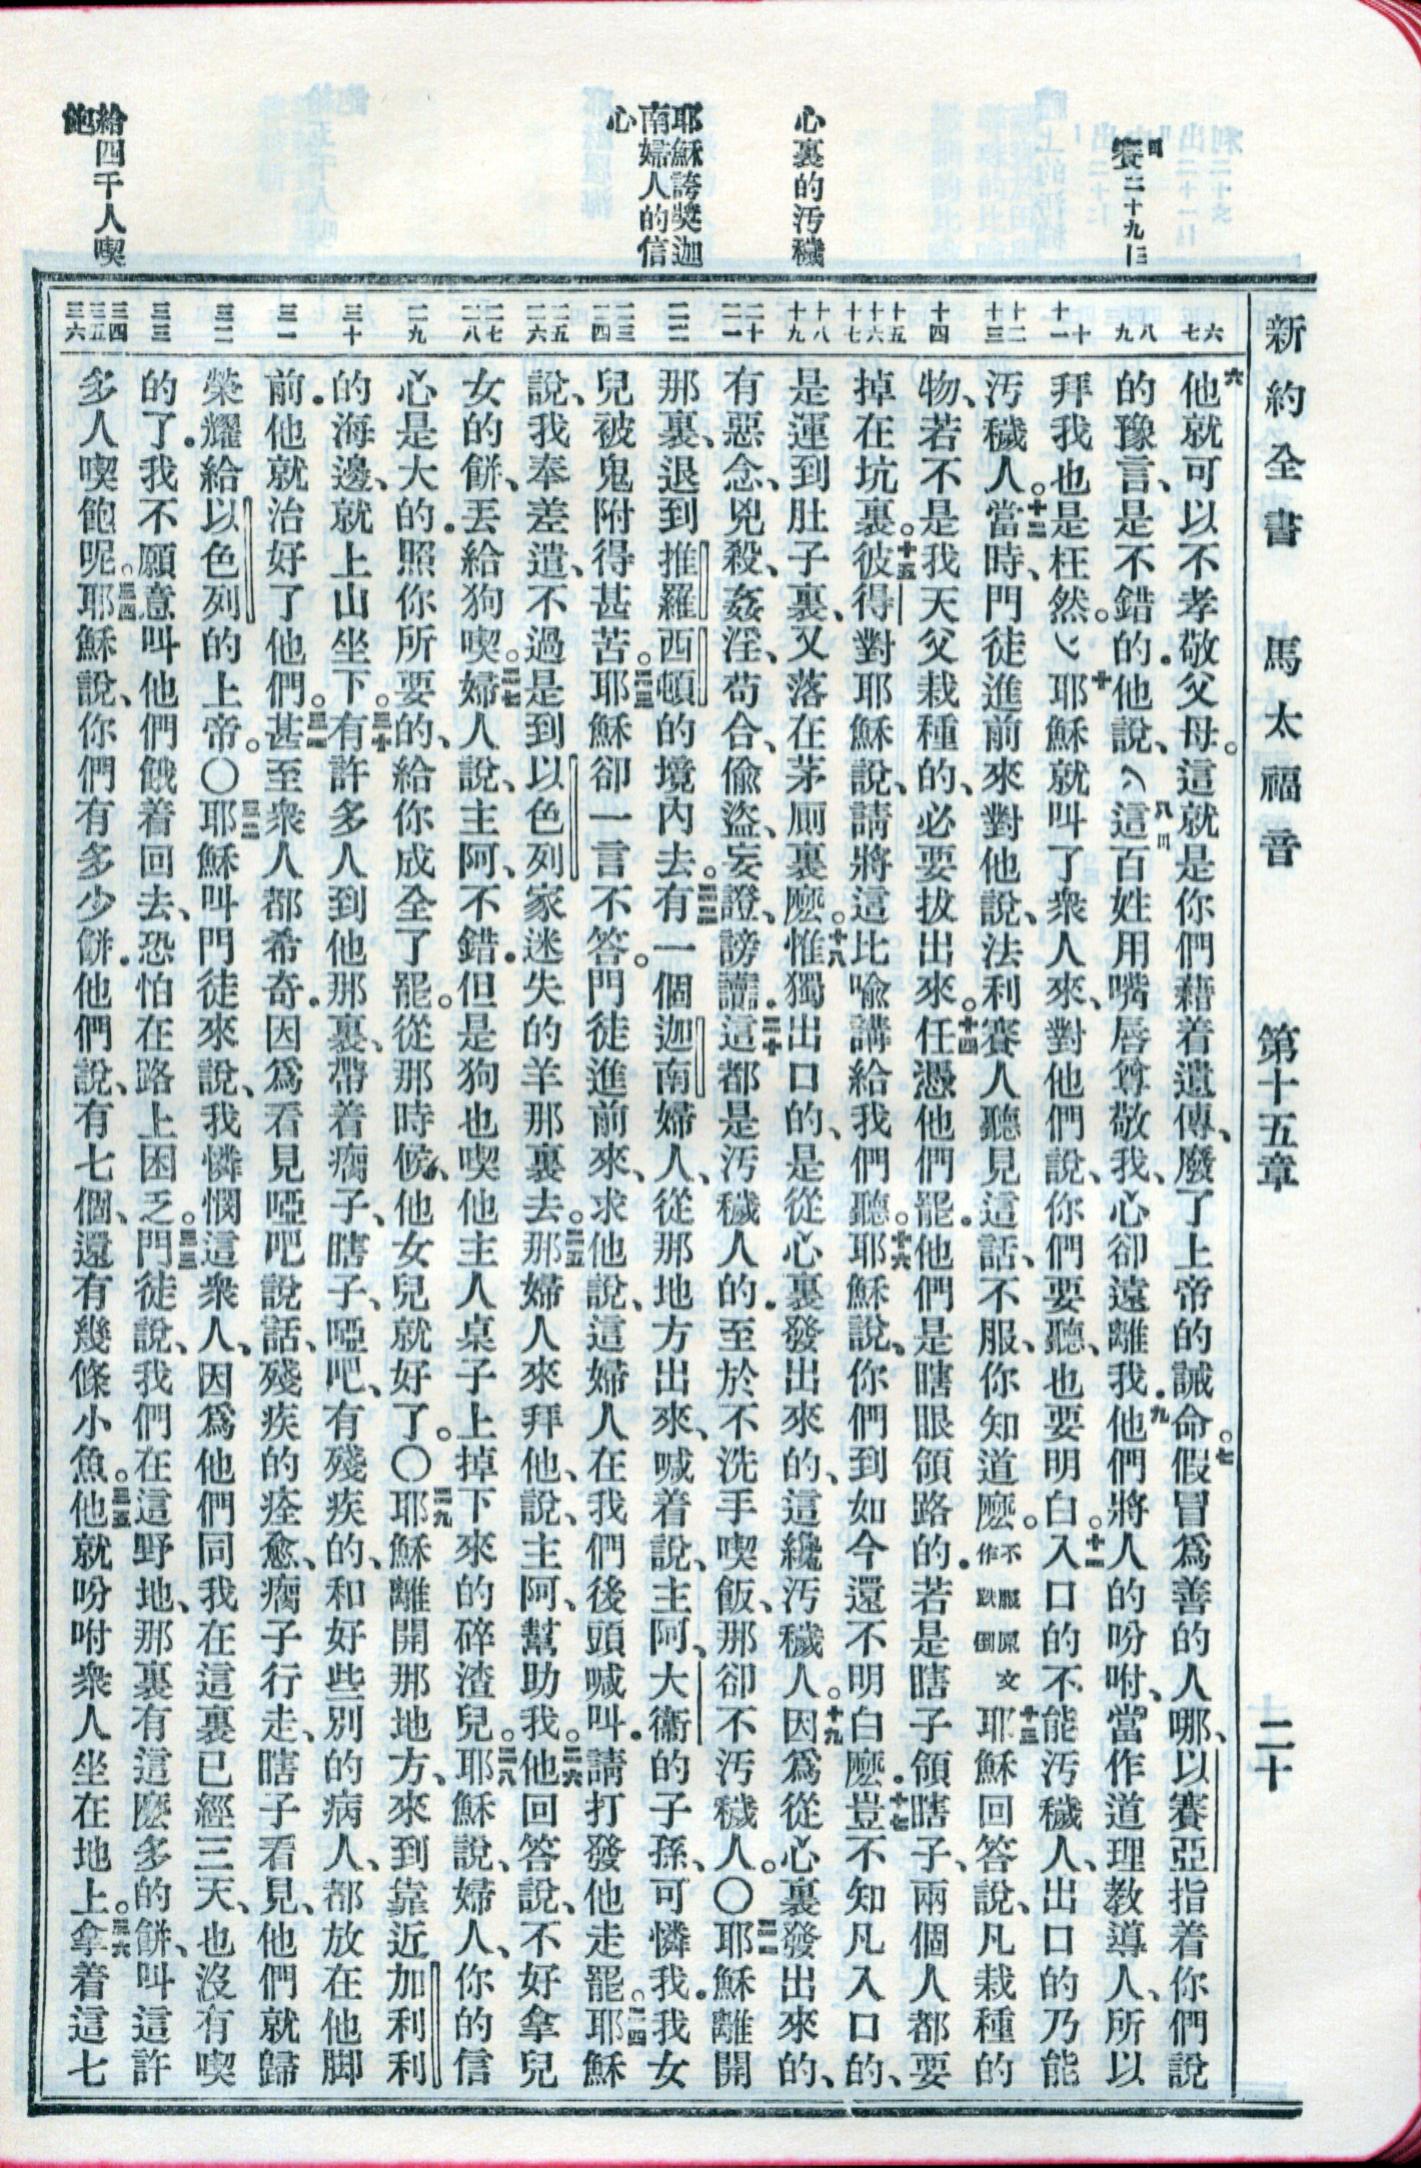 新約全書　馬太福音　第十五章　二十
四賽二十九〔三
心裏的汚穢
耶穌誇獎迦
南婦人的信
心
給四千人喫
飽
六
七
八
九
十
十一
十二
十三
十四
十五
十六
十七
十八
十九
二十
二一
二二
二三
二四
二五
二六
二七
二八
二九
三十
三一
三二
三三
三四
三五
三六
六他就可以不孝敬父母。這就是你們藉着遺傳、廢了上帝的誡命。七假冒爲善的人哪、以賽亞指着你們說
的豫言、是不錯的．他說、八四這百姓用嘴唇尊敬我、心卻遠離我．九他們將人的吩咐、當作道理教導人、所以
拜我也是枉然。十耶穌就叫了衆人來、對他們說、你們要聽、也要明白。十一入口的不能汚穢人、出口的乃能
汚穢人。十二當時、門徒進前來對他說、法利賽人聽見這話、不服、你知道麽。不服原文作跌倒十三耶穌回答說、凡栽種的
物、若不是我天父栽種的、必要拔出來。十四任憑他們罷．他們是瞎眼領路的．若是瞎子領瞎子、兩個人都要
掉在坑裏。十五彼得對耶穌說、請將這比喻講給我們聽。十六耶穌說、你們到如今還不明白麽．十七豈不知凡入口的、
是運到肚子裏、又落在茅厠裏麽。十八惟獨出口的、是從心裏發出來的、這纔汚穢人。十九因爲從心裏發出來的、
有惡念、兇殺、姦淫、苟合、偷盜、妄證、謗讟．二十這都是汚穢人的．至於不洗手喫飯、那卻不汚穢人。〇二一耶穌離開
那裏、退到推羅西頓的境內去。二二有一個迦南婦人、從那地方出來、喊着說、主阿、大衞的子孫、可憐我．我女
兒被鬼附得甚苦。二三耶穌卻一言不答。門徒進前來、求他說、這婦人在我們後頭喊叫．請打發他走罷。二四耶穌
說、我奉差遣、不過是到以色列家迷失的羊那裏去。二五那婦人來拜他、說、主阿、幫助我。二六他回答說、不好拿兒
女的餅、丟給狗喫。二七婦人說、主阿、不錯．但是狗也喫他主人桌子上掉下來的碎渣兒。二八耶穌說、婦人、你的信
心是大的．照你所要的、給你成全了罷。從那時候、他女兒就好了。〇二九耶穌離開那地方、來到靠近加利利
的海邊、就上山坐下。三十有許多人到他那裏、帶着瘸子、瞎子、啞吧、有殘疾的、和好些別的病人、都放在他脚
前．他就治好了他們。三一甚至衆人都希奇．因爲看見啞吧說話、殘疾的痊愈、瘸子行走、瞎子看見、他們就歸
榮耀給以色列的上帝。〇三二耶穌叫門徒來說、我憐憫這衆人、因爲他們同我在這裏已經三天、也沒有喫
的了．我不願意叫他們餓着回去、恐怕在路上困乏。三三門徒說、我們在這野地、那裏有這麽多的餅、叫這許
多人喫飽呢。三四耶穌說、你們有多少餅．他們說、有七個、還有幾條小魚。三五他就吩咐衆人坐在地上。三六拿着這七